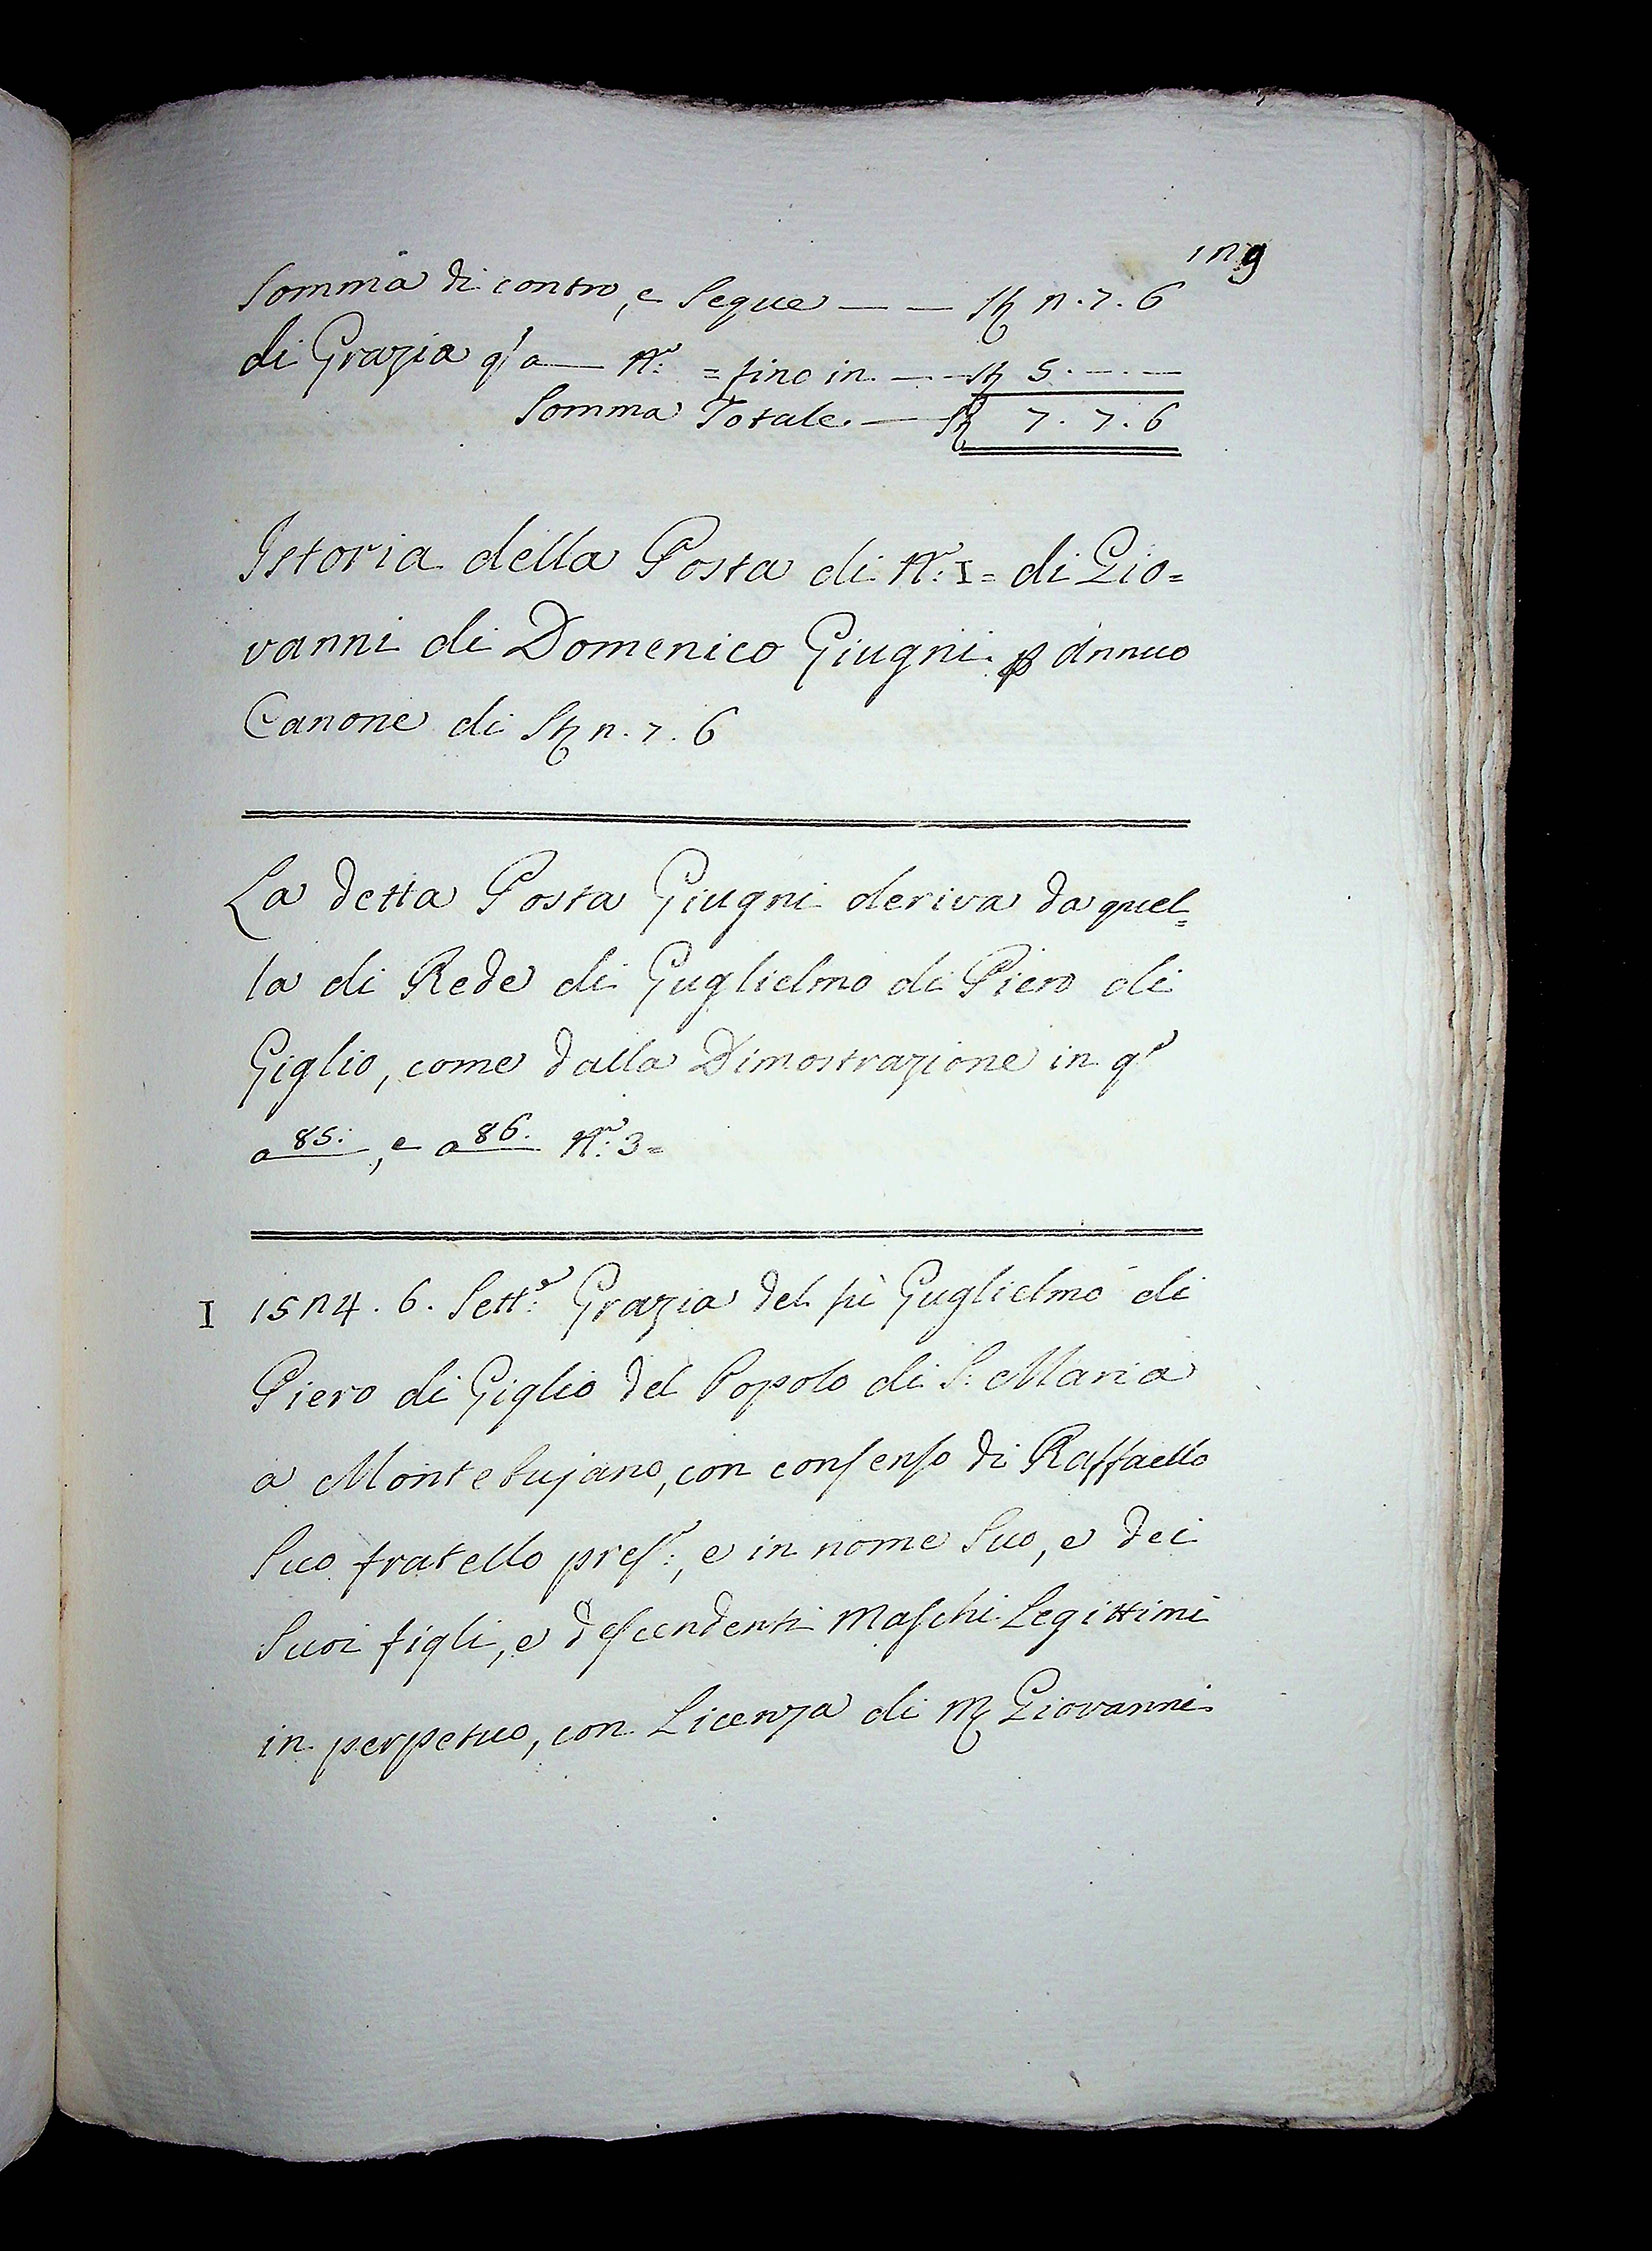 129
Somma di contro, e Segue — — St 2. 7. 6
di Grazia q.º a — N.º = fino in. — — St 5. — . —
Somma Totale. — St 7. 7. 6
Istoria della Posta di N.º I = di Gio=
vanni di Domenico Giugni. p annuo
Canone di St 2. 7. 6
La detta Posta Giugni deriva da quel=
la di Rede di Guglielmo di Piero di
Giglio, come dalla Dimostrazione in q.º
a 85:, e a 86. N.º 3 =
I 1524. 6. Sett.e Grazia del fù Guglielmo di
Piero di Giglio del Popolo di S. Maria
a Montebujano, con consenso di Raffaello
Suo fratello pres.e, e in nome Suo, e dei
Suoi figli, e descendenti Maschi Legittimi
in perpetuo, con Licenza di Mr Giovanni